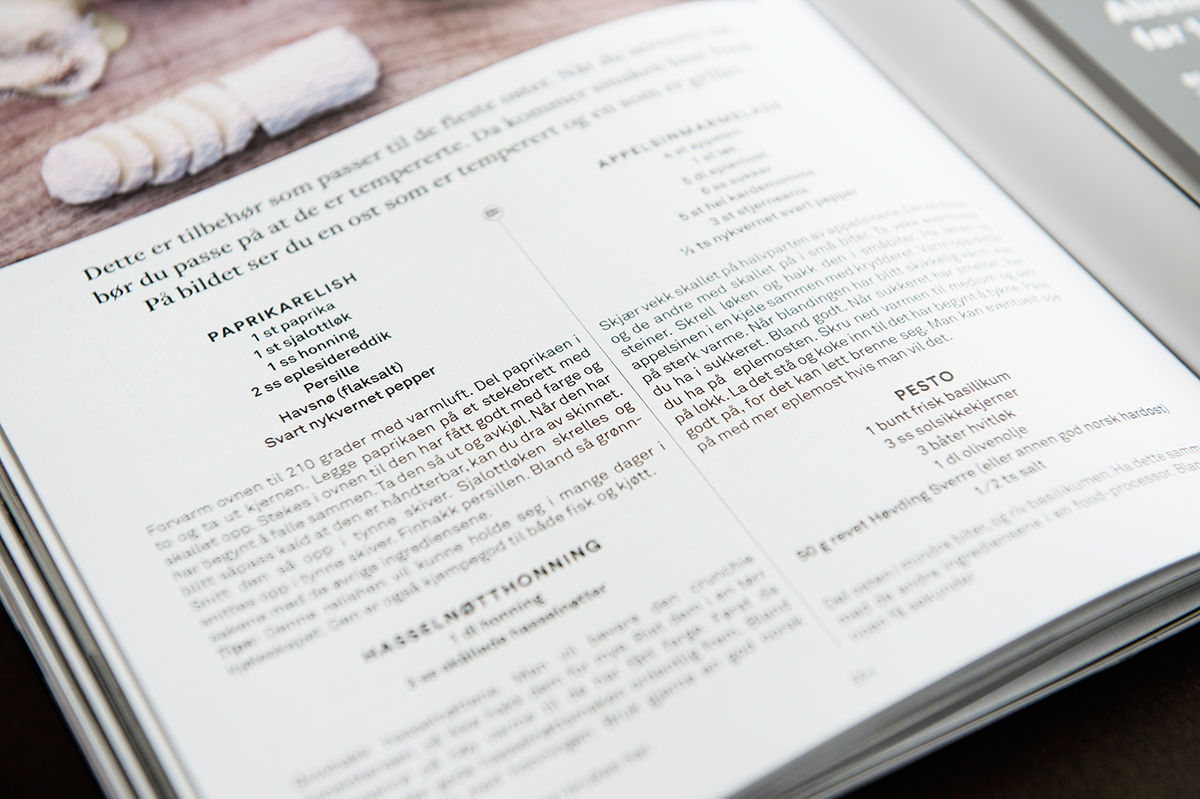 Dette er tilbehør som passer til de fleste oster. Når du serverer
bør du passe på at de er tempererte. Da kommer smaken best frem.
På bildet ser du en ost som er temperert og en som er grillet.
PAPRIKARELISH
1 st paprika
1 st sjalottløk
1 ss honning
2 ss eplesidereddik
Persille
Havsnø (flaksalt)
Svart nykvernet pepper
Forvarm ovnen til 210 grader med varmluft. Del paprikaen i
to og ta ut kjernen. Legge paprikaen på et stekebrett med
skallet opp. Stekes i ovnen til den har fått godt med farge og
har begynt å falle sammen. Ta den så ut og avkjøl. Når den har
blitt såpass kald at den er håndterbar, kan du dra av skinnet.
Snitt den så opp i tynne skiver. Sjalottløken skrelles og
snittes opp i tynne skiver. Finhakk persillen. Bland så grønn-
sakene med de øvrige ingrediensene.
Tips: Denne relishen vil kunne holde seg i mange dager i
kjøleskapet. Den er også kjempegod til både fisk og kjøtt.
HASSELNØTTHONNING
1 dl honning
3 ss skållede hasselnøtter
hasselnøttene. Man vil bevare den crunchie
APPELSINMARMELADE
4 st appelsin
1 st løk
5 dl eplemost
6 ss sukker
5 st hel kardemomme
3 st stjerneanis
½ ts nykvernet svart pepper
Skjær vekk skallet på halvparten av appelsinene. Del så disse
og de andre med skallet på i små biter. Ta vekk eventuelle
steiner. Skrell løken og hakk den i småbiter. Ha løken og
appelsinen i en kjele sammen med krydderet. Varm opp dette
på sterk varme. Når blandingen har blitt skikkelig varm, kan
du ha i sukkeret. Bland godt. Når sukkeret har smeltet, kan
du ha på eplemosten. Skru ned varmen til medium og sett
på lokk. La det stå og koke inn til det har begynt å tykne. Pass
godt på, for det kan lett brenne seg. Man kan eventuelt spe
på med mer eplemost hvis man vil det.
PESTO
1 bunt frisk basilikum
3 ss solsikkekjerner
3 båter hvitløk
1 dl olivenolje
50 g revet Høvding Sverre (eller annen god norsk hardost)
1/2 ts salt
Del osten i mindre biter, og riv basilikumen. Ha dette sammen
med de andre ingrediensene i en food-processor.